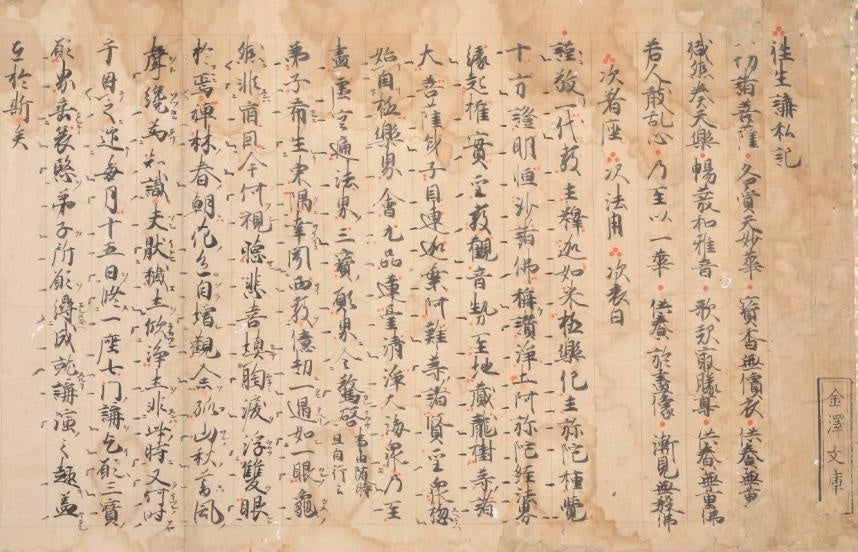 徃生講私記
一切諸菩薩 各賷天妙華 寶香無價衣 供養無量
咸然奏天樂 暢發和雅音 歌歎最勝尊 供養無量佛
若人散乱心 乃至以一華 供養於畫像 漸見無數佛
次着座 次法用 次表白
謹敬一代教主釋迦如来極樂化主弥陁種覺
十方證明恒沙諸佛稱讃浄土阿弥陁経法
縁起権實聖教觀音勢至地蔵龍樹等諸
大菩薩身子目連迦葉阿難等諸賢聖衆惣
始自極樂界會九品蓮臺清浄大海衆乃至
盡虚空遍法界三寶願界驚啓 事由随時 且自行云
弟子希生東隅幸聞西教億劫一遇如一眼龜
縦非宿因今何視聴悲喜填胸涙浮雙眼
於焉禅林春朝花色自增觀念孤山秋暮風
聲纔為知識夫猒穢土欣浄土非此時又何時
于因之毎月十五日修一座七門講乞願三寶
願界垂哀愍弟子所願得成就講演之趣蓋
在於斯矣
金澤文庫